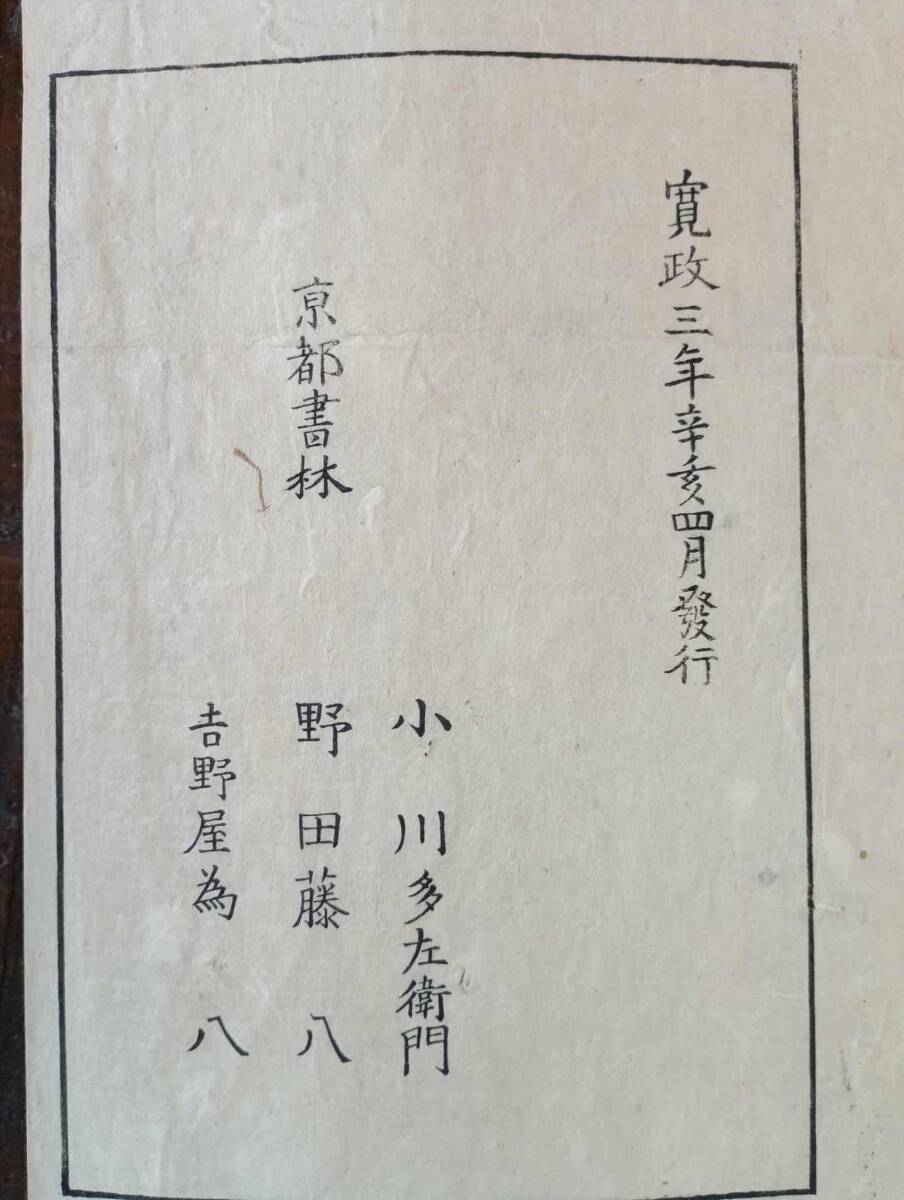 寛政三年辛亥四月發行
京都書林
小川多左衛門
野田藤八
吉野屋為八